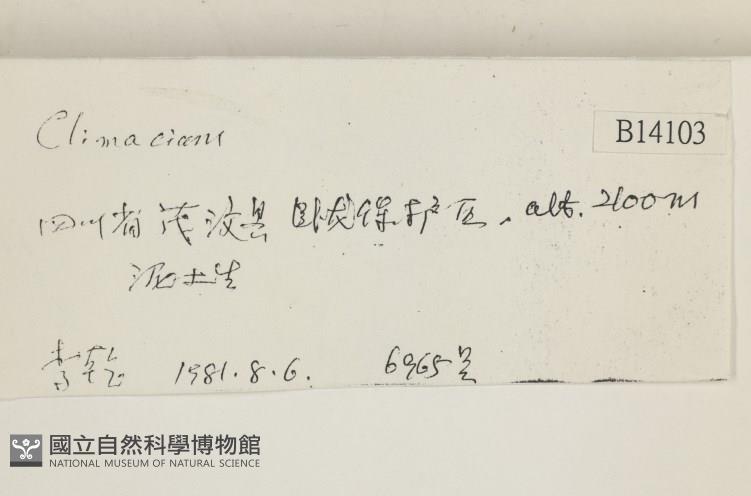 Climacium
B14103
四川省茂汶县卧龙保护区, alt. 2100m
泥土生
李乾 1981.8.6. 6965号
國立自然科學博物館
NATIONAL MUSEUM OF NATURAL SCIENCE